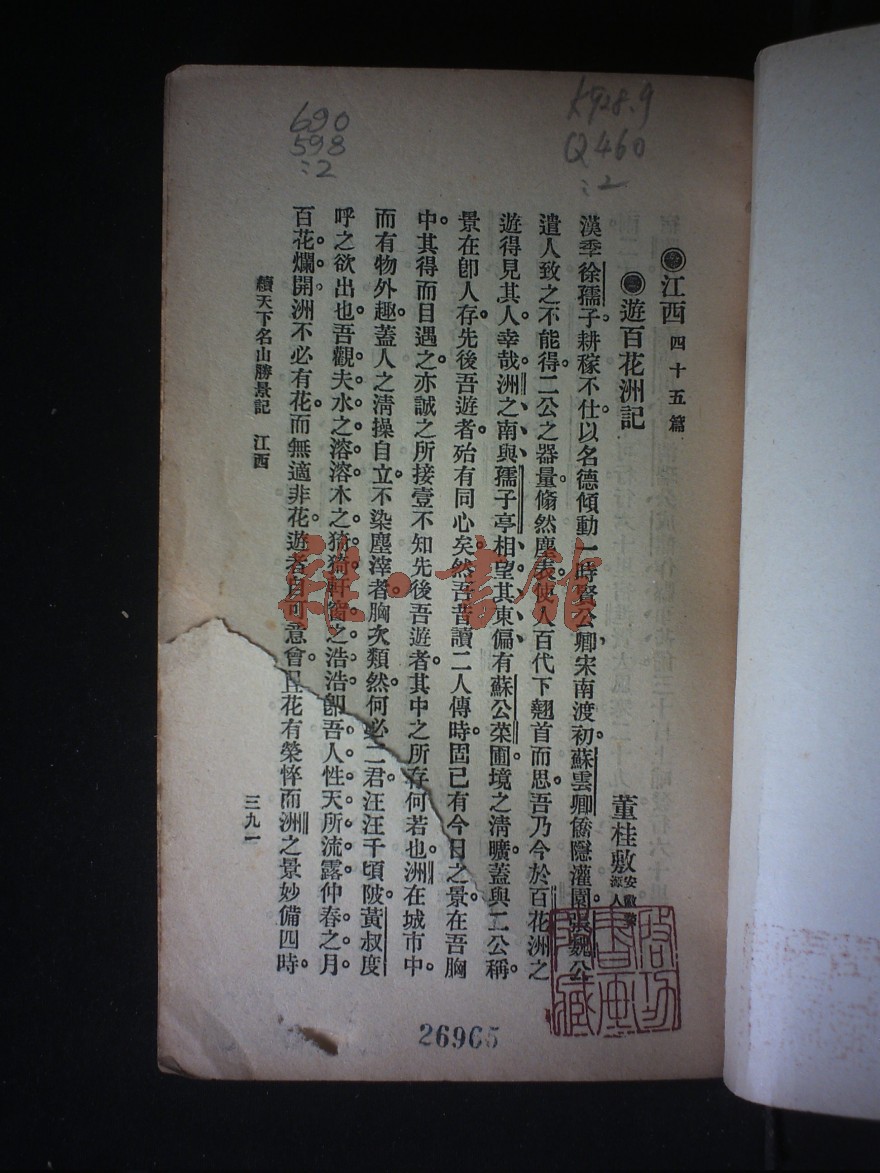 690
598
:2
K928.9
Q460
:2
◉江西四十五篇
◉遊百花洲記
董桂敷 安徽婺源人
漢季徐孺子耕稼不仕。以名德傾動一時賢公卿、宋南渡初。蘇雲卿僑隱灌園。張魏公
遣人致之不能得。二公之器量翛然塵表。使人百代下翹首而思。吾乃今於百花洲之
遊得見其人。幸哉洲之南與孺子亭相望、其東偏有蘇公菜圃。境之清曠。蓋與二公稱。
景在卽人存。先後吾遊者。殆有同心矣。然吾昔讀二人傳時。固已有今日之景在吾胸
中。其得而目遇之。亦誠之所接。壹不知先後吾遊者。其中之所存何若也。洲在城市中。
而有物外趣。蓋人之清操自立。不染塵滓者。胸次類然。何必二君。汪汪千頃陂。黃叔度
呼之欲出也。吾觀夫水之溶溶。木之猗猗。軒窗之浩浩。卽吾人性天所流露。仲春之月。
百花爛開。洲不必有花。而無適非花。遊者自可意會。且花有榮悴。而洲之景妙備四時。
續天下名山勝景記 江西
三九一
26965
雜·書館